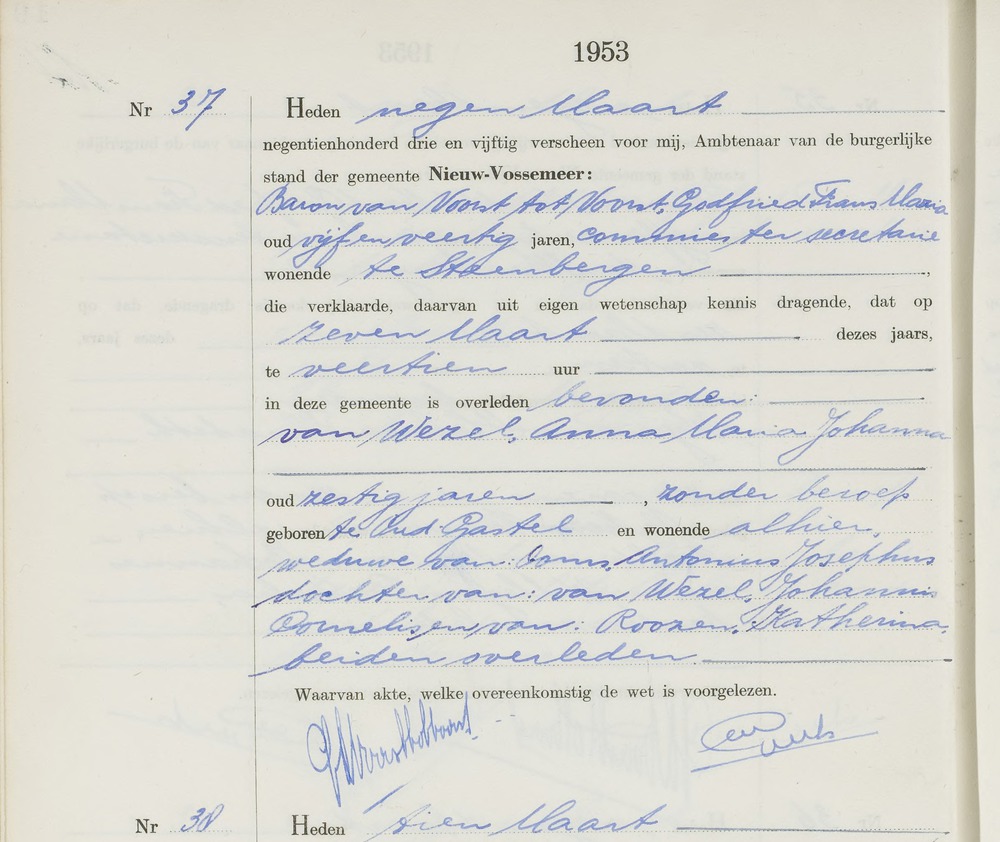 1953
Nr 37 Heden negen Maart
negentienhonderd drie en vijftig verscheen voor mij, Ambtenaar van de burgerlijke
stand der gemeente Nieuw-Vossemeer:
Baron van Voorst tot Voorst, Godfried Frans Maria
oud vijf en veertig jaren, commies ter secretarie
wonende te Steenbergen ,
die verklaarde, daarvan uit eigen wetenschap kennis dragende, dat op
zeven Maart dezes jaars,
te veertien uur
in deze gemeente is overleden bevonden:
van Wezel, Anna Maria Johanna
oud zestig jaren , zonder beroep
geboren te Oud Gastel en wonende alhier,
weduwe van: Ooms, Antonius Josephus
dochter van: van Wezel, Johannis
Cornelis en van: Roozen, Katherina,
beiden overleden
Waarvan akte, welke overeenkomstig de wet is voorgelezen.
Nr 38 Heden tien Maart